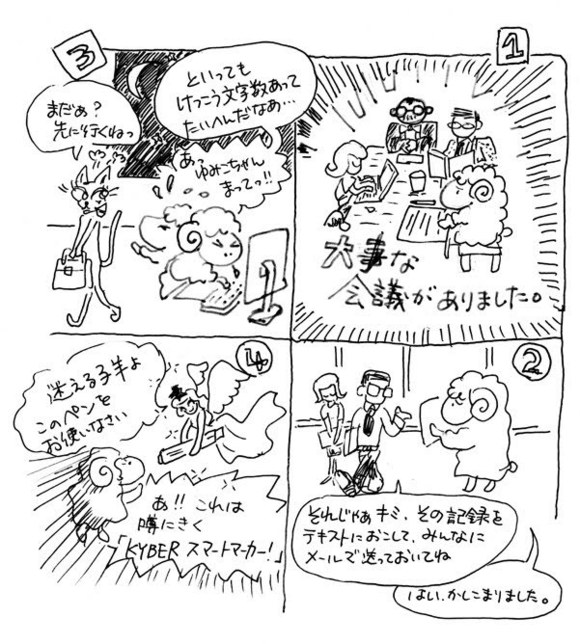 1
大事な
会議がありました。
2
それじゃあキミ、その記録を
テキストにおこして、みんなに
メールで送っておいてね
はい、かしこまりました。
3
といっても
けっこう文字数あって
たいへんだなあ…
まだぁ?
先に行くねっ
あっ ゆみこちゃん
まってっ!!
4
迷える子羊よ
このペンを
お使いなさい
あ!! これは
噂にきく
「KYBER スマートマーカー!」